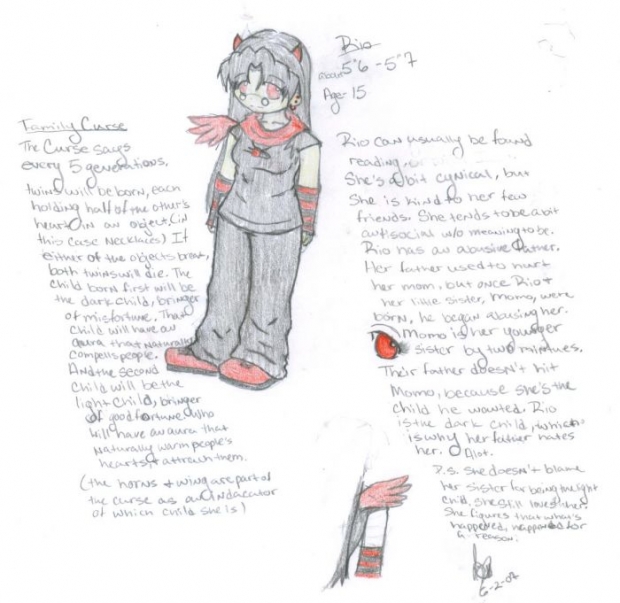 Rio
about 5"6 - 5"7
Age- 15
Family Curse
The Curse says
every 5 generations,
twins will be born, each
holding half of the other's
heart in an object, (in
this case Necklaces) If
either of the objects break,
both twins will die. The
child born first will be
the dark child, bringer
of misfortune. That
child will have an
aura that naturally
compells people.
And the second
child will be the
light child, bringer
of good fortune. Who
will have an aura that
naturally warm people's
hearts, & attracts them.
(the horns & wing are part of
the curse as an indacator
of which child she is)
Rio can usually be found
reading,
She's a bit cynical, but
she is kind to her few
friends. She tends to be a bit
antisocial w/o meaning to be.
Rio has an abusive father.
Her father used to hurt
her mom, but once Rio &
her little sister, Momo, were
born, he began abusing her.
Momo is her younger
sister by two minutues.
Their father doesn't hit
Momo, because she's the
child he wanted. Rio
is the dark child, which
is why her father hates
her. Alot.
P.s. she doesn't blame
her sister for being the light
child, she still loves her.
She figures that what's
happened, happened for
a reason.
6-2-07